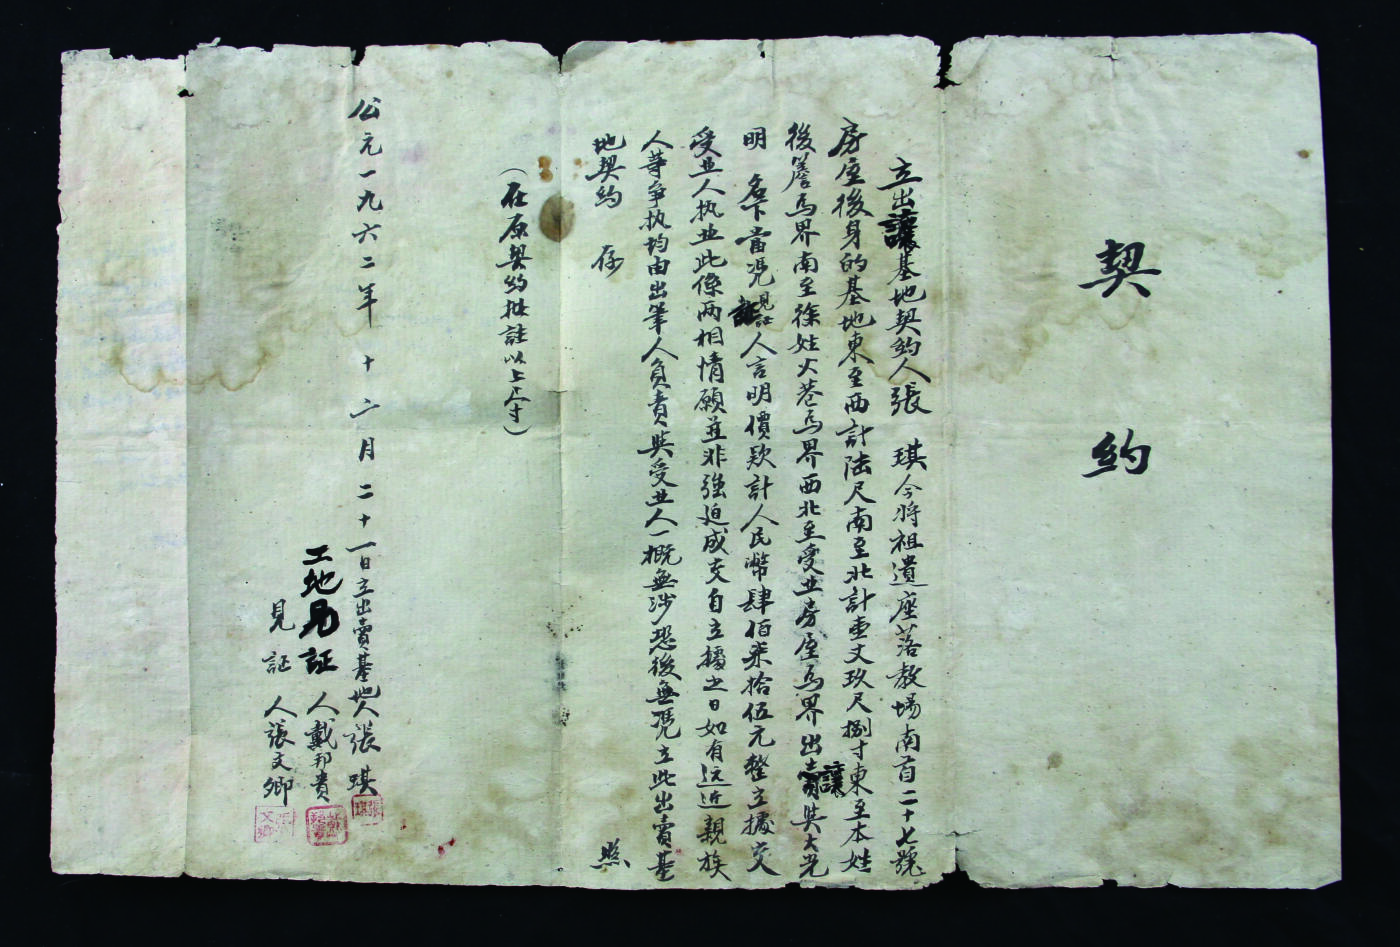 契約
立出讓基地契約人張 琪今將祖遺座落教場南首二十七號
房屋後身的基地東至西計陆尺南至北計壹丈玖尺捌寸東至本姓
後簷為界南至徐姓火巷為界西北至受业房屋為界出讓與大光
明 名下當凴見証人言明價款計人民幣肆佰柒拾伍元整立據交
受业人执业此係两相情願並非強迫成交自立據之日如有远近親族
人等争执均由出筆人負責與受业人一概無涉恐後無凴立此出賣基
地契約 存 照
（在原契約批註以上尺寸）
公元一九六二年 十 二月 二十一日立出賣基地人張 琪
工地見証 人戴邦貴
見 証 人張文卿